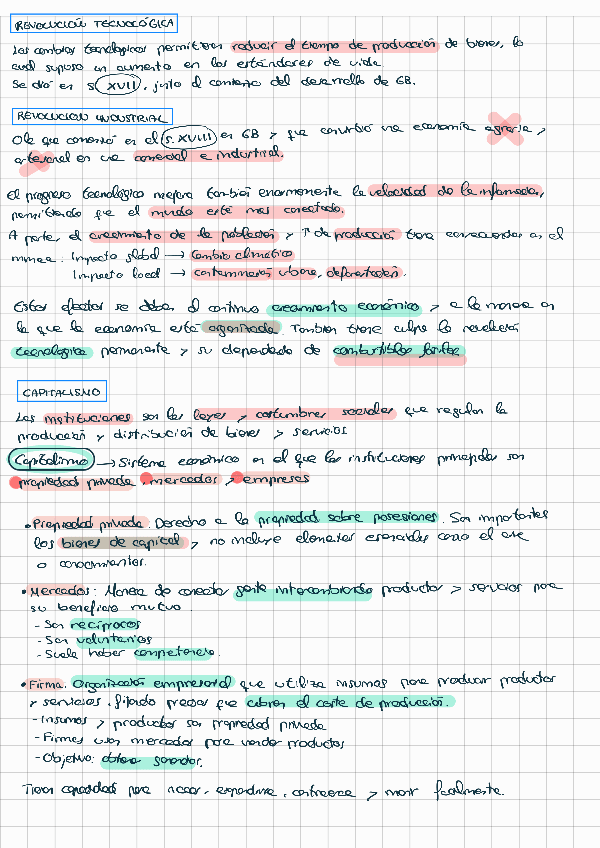 REVOLUCIÓN TECNOLÓGICA
Los cambios tecnológicos permitieron reducir el tiempo de producción de bienes, lo
cual supuso un aumento en los estándares de vida.
Se dió en s. XVII, junto al contexto del desarrollo de GB.
REVOLUCIÓN INDUSTRIAL
Ole que comenzó en el s. XVIII en GB y que convirtió una economía agraria y
artesanal en una comercial e industrial.
El progreso tecnológico mejora también enormemente la velocidad de la información,
permitiendo que el mundo esté más conectado.
A parte, el crecimiento de la población y ↑ de producción tiene consecuencias en el
mundo. Impacto global → Cambio climático
Impacto local → contaminación urbana, deforestación.
Estos efectos se deben al continuo crecimiento económico y a la manera en
la que la economía está organizada. También tiene culpa la revolución
tecnológica permanente y su dependencia de combustibles fósiles
CAPITALISMO
Las instituciones son las leyes y costumbres sociales que regulan la
producción y distribución de bienes y servicios
Capitalismo → Sistema económico en el que las instituciones principales son
propiedad privada, mercados y empresas
• Propiedad privada. Derecho a la propiedad sobre posesiones. Son importantes
los bienes de capital y no incluye elementos esenciales como el aire
o conocimientos.
• Mercados: Manera de conectar gente intercambiando productos y servicios para
su beneficio mutuo.
- Son recíprocos
- Son voluntarios
- Suele haber competencia.
• Firma. Organización empresarial que utiliza insumos para producir productos
y servicios, fijando precios que cubran el coste de producción.
- Insumos y productos son propiedad privada
- Firmas usan mercados para vender productos
- Objetivo: obtener ganancias.
Tienen capacidad para nacer, expandirse, contraerse y morir fácilmente.